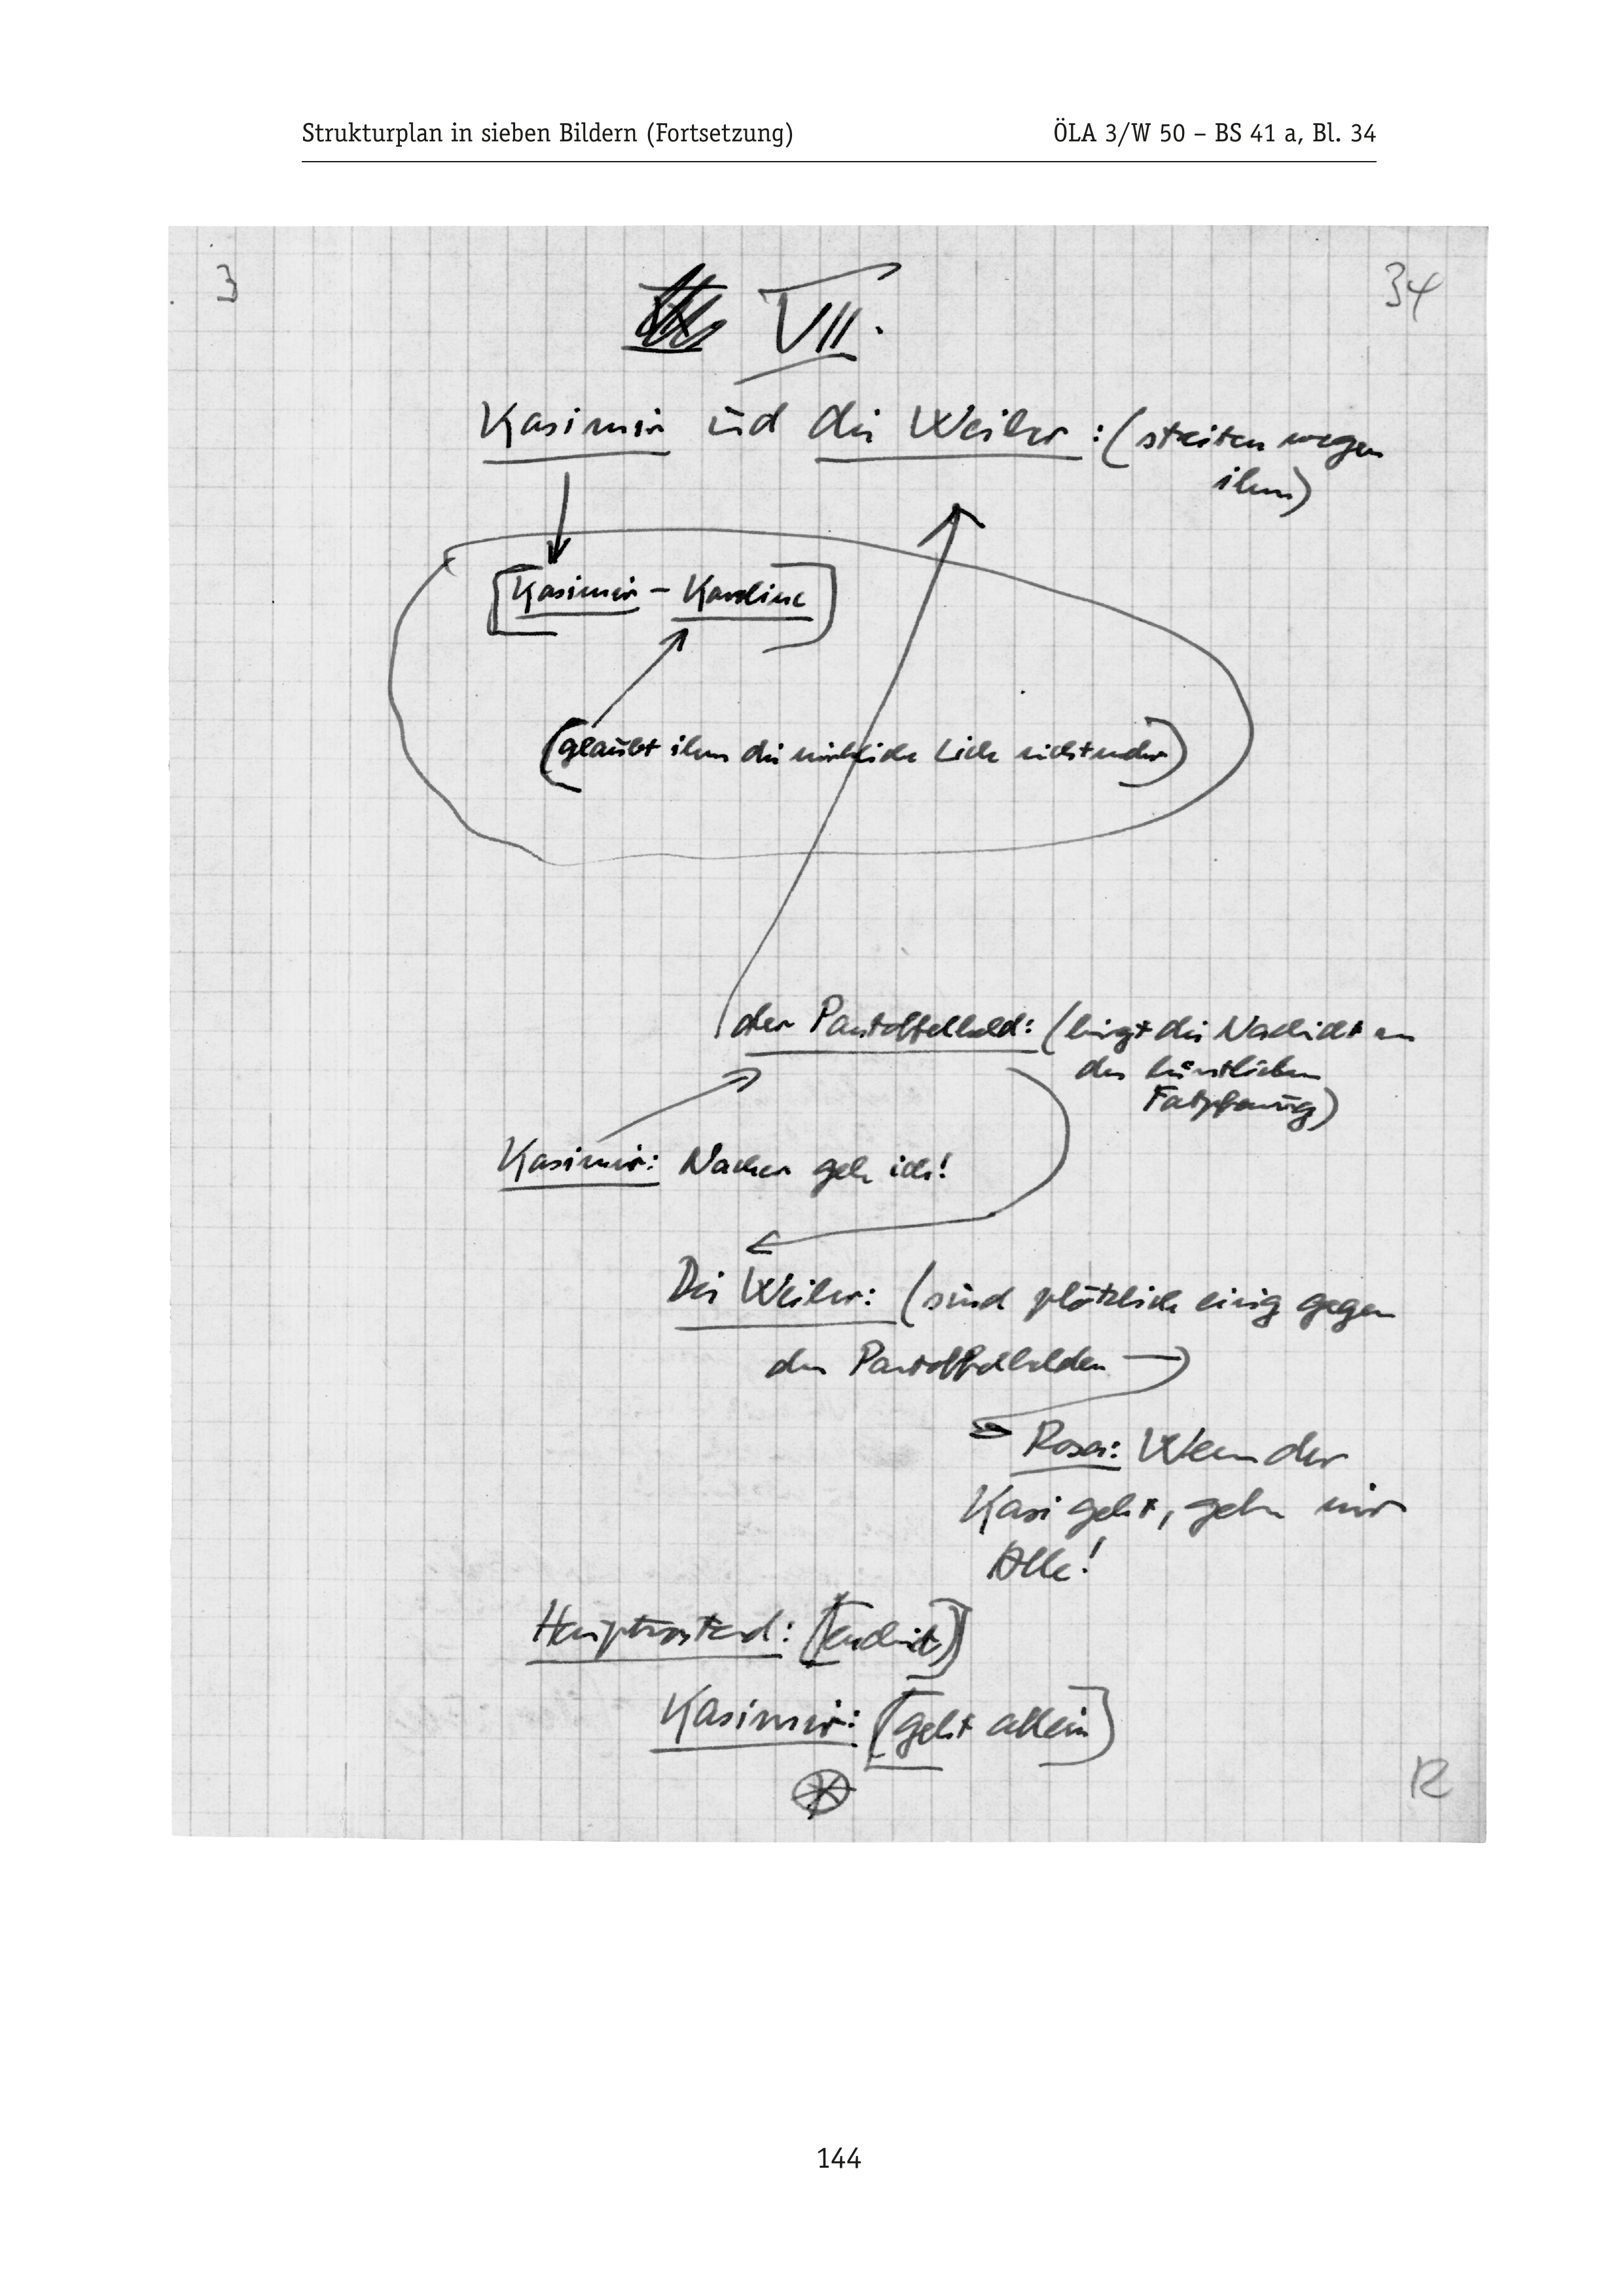 Strukturplan in sieben Bildern (Fortsetzung) ÖLA 3/W 50 – BS 41 a, Bl. 34
3 34
VII.
Kasimir und die Weiber: (streiten wegen
ihm)
Kasimir – Karoline
(glaubt ihm die wirkliche Liebe nicht mehr)
der Pantoffelheld: (bringt die Nachricht von
der künstlichen
Kasimir: Nacher geh ich!
Die Weiber: (sind plötzlich einig gegen
den Pantoffelhelden
Rosa: Wenn der
Kasi geht, gehn wir
Alle!
Hauptvorstand:
Kasimir: (geht allein)
12
144